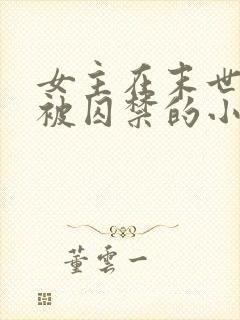 女主在末世
被囚禁的小
董云一